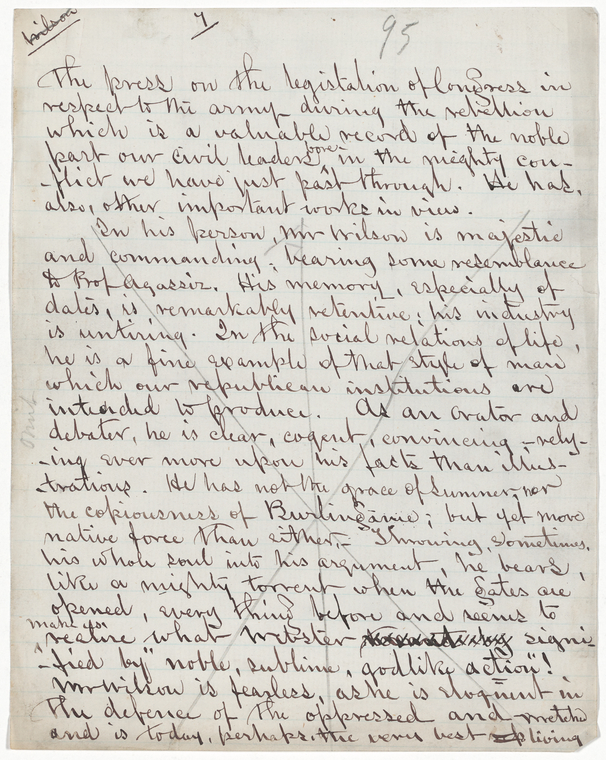 Wilson 7 95
The press on the legislation of Congress in
respect to the army during the rebellion
which is a valuable record of the noble
part our civil leaders bore in the mighty con-
-flict we have just past through. He has,
also, other important works in view.
In his person, Mr Wilson is majestic
and commanding, bearing some resemblance
to Prof Agassiz. His memory, especially of
dates, is remarkably retentive; his industry
is untiring. In the social relations of life,
he is a fine example of that style of man
which our republican institutions are
intended to produce. As an orator and
Omit
debater, he is clear, cogent, convincing - rely-
-ing ever more upon his facts than illus-
-trations. He has not the grace of Sumner, nor
the copiousness of Burlingame; but yet more
native force than either. Throwing, sometimes,
his whole soul into his argument, he bears,
like a mighty torrent when the gates are
opened, every thing before and seems to
make us
realize what Webster signi-
-fied by "noble, sublime, godlike action"!
Mr Wilson is fearless, as he is eloquent in
the defence of the oppressed and wretched
and is today, perhaps the very best living